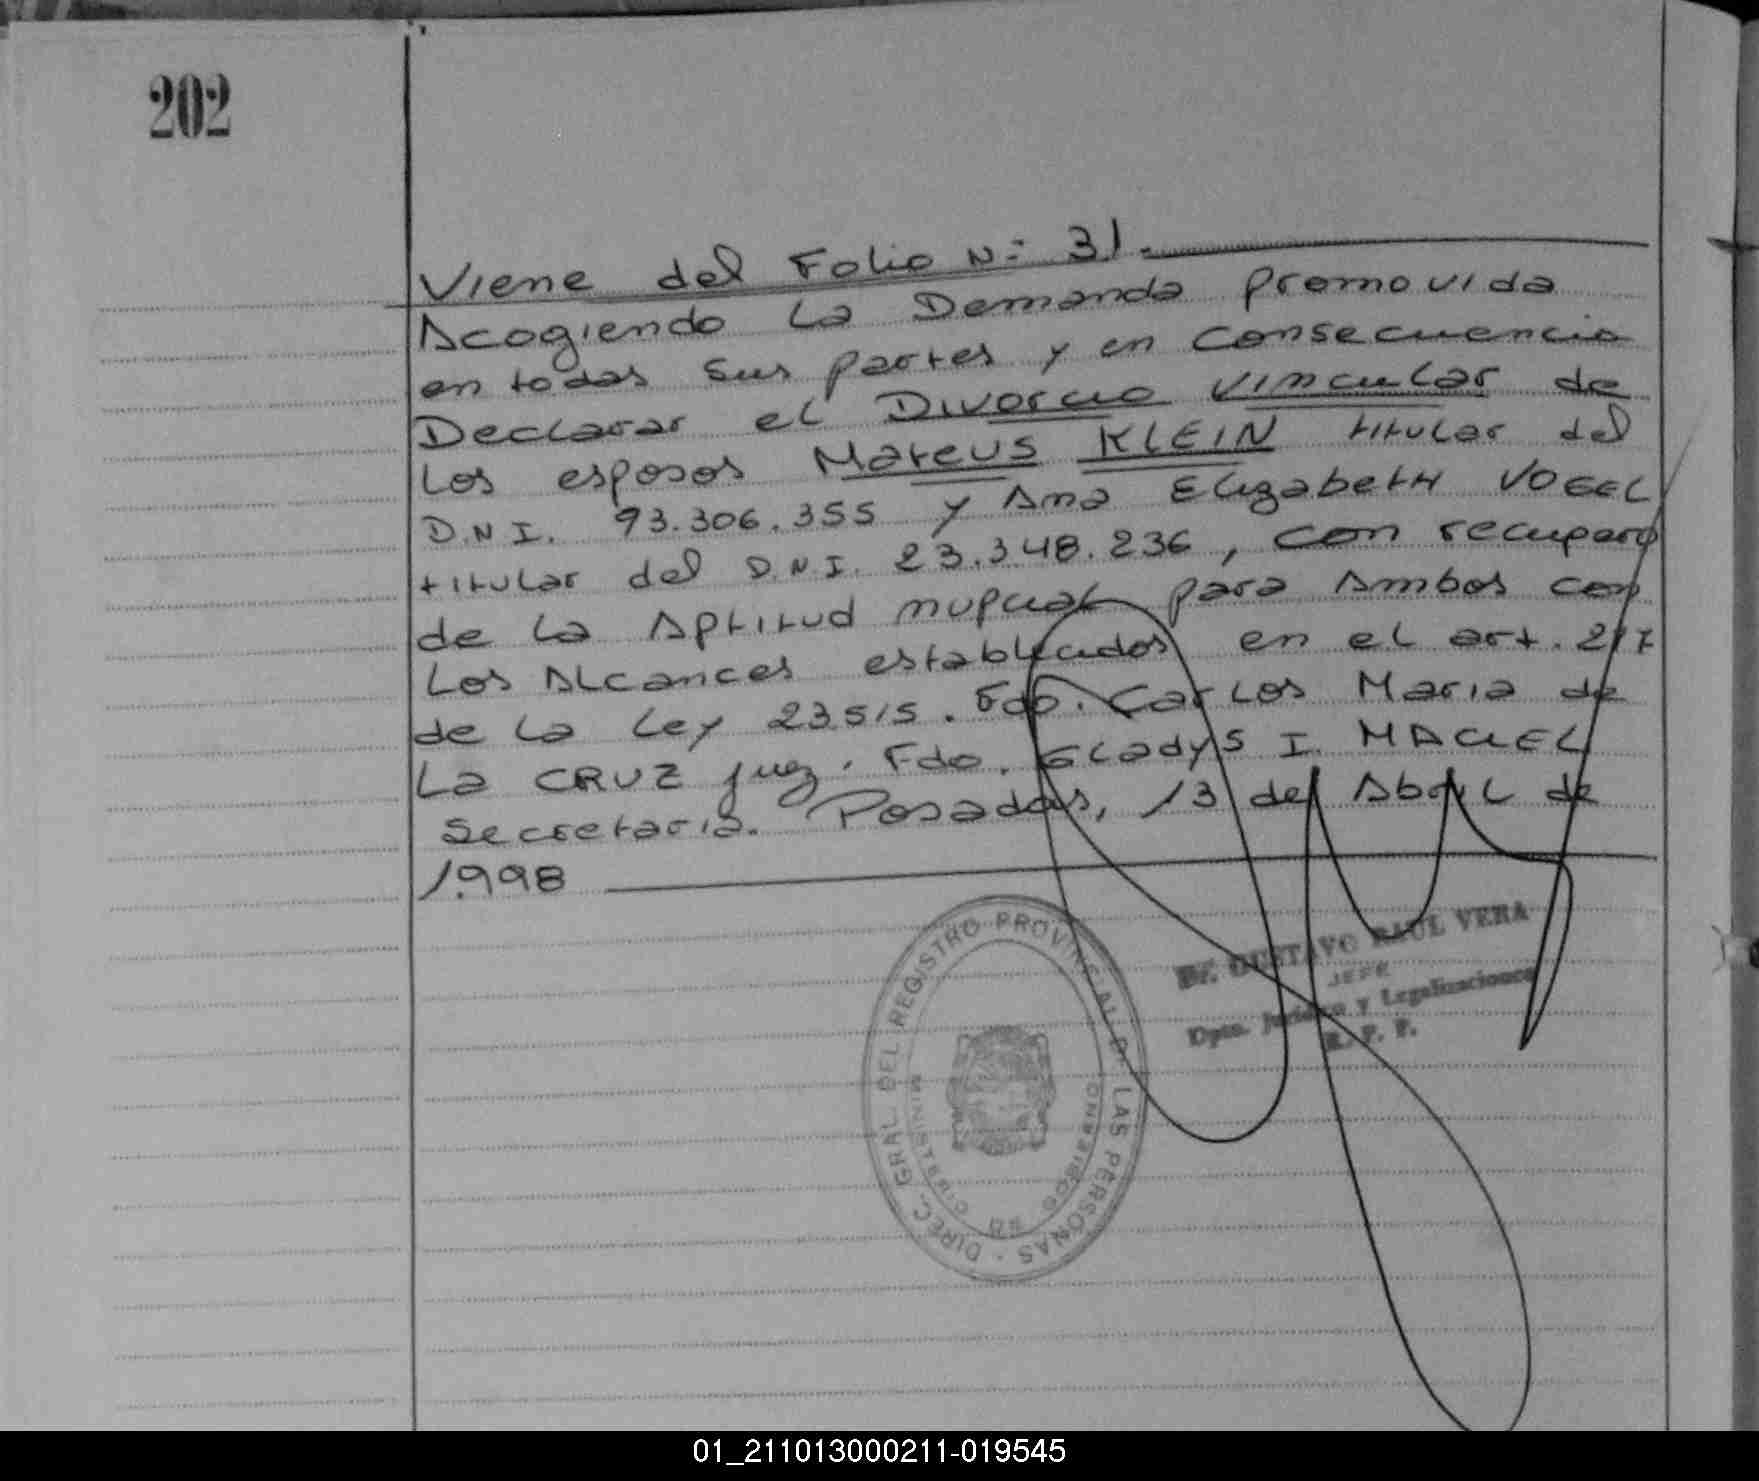 202
Viene del Folio N: 31.
Acogiendo La Demanda promovida
en todas sus partes y en consecuencia
Declarar el Divorcio Vincular de
Los esposos Mateus KLEIN titular del
D.N.I. 93.306.355 y Ana Elizabeth VOGEL
titular del D.N.I. 23.348.236, con recupero
de la Aptitud nupcial para Ambos con
Los Alcances establecidos en el art. 217
de la Ley 23515. Fdo. Carlos Maria de
La CRUZ Juez. Fdo. Gladys I. MACIEL
Secretaria. Posadas, 13 del Abril de
1998
Dr. GUSTAVO RAUL VERA
JEFE
Dpto. Jurídico y Legalizaciones
R. P. P.
DIREC. GRAL. DEL REGISTRO PROVINCIAL D. LAS PERSONAS
MINISTERIO DE GOBIERNO
01_211013000211-019545